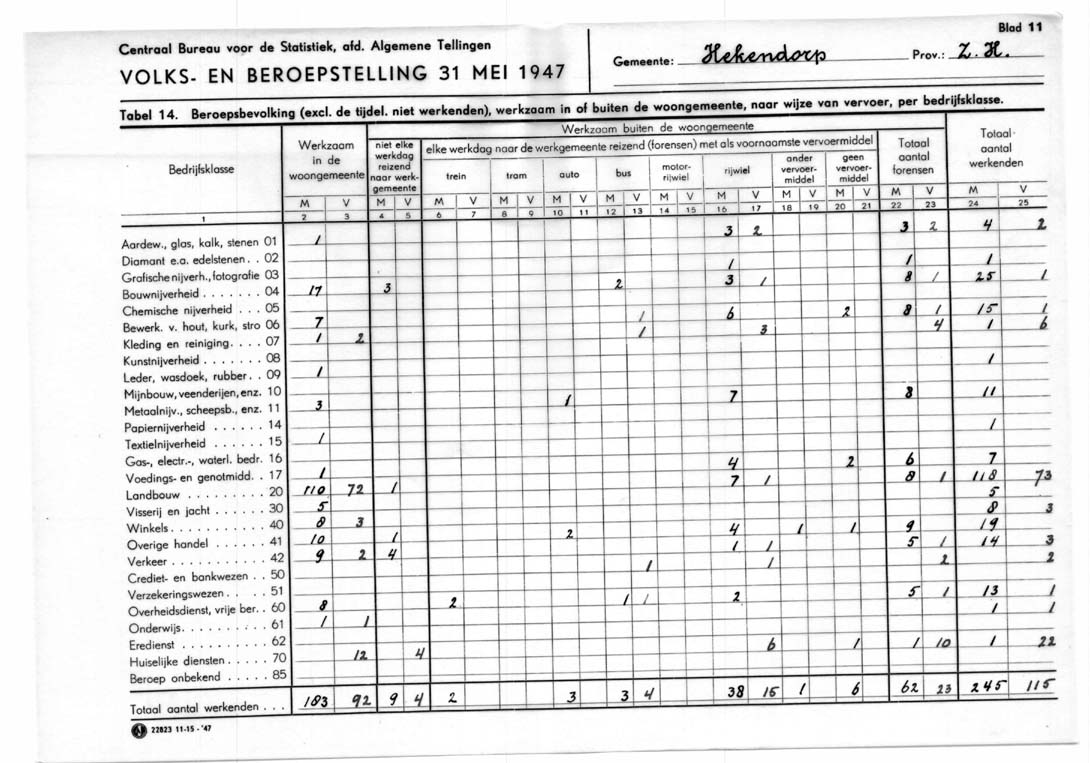 Blad 11
Centraal Bureau voor de Statistiek, afd. Algemene Tellingen
VOLKS- EN BEROEPSTELLING 31 MEI 1947
Gemeente: Hekendorp Prov.: Z. H.
Tabel 14. Beroepsbevolking (excl. de tijdel. niet werkenden), werkzaam in of buiten de woongemeente, naar wijze van vervoer, per bedrijfsklasse.
Bedrijfsklasse
Werkzaam in de woongemeente
Werkzaam buiten de woongemeente
niet elke werkdag reizend naar werkgemeente
elke werkdag naar de werkgemeente reizend (forensen) met als voornaamste vervoermiddel
trein tram auto bus motorrijwiel rijwiel ander vervoermiddel geen vervoermiddel
Totaal aantal forensen
Totaal aantal werkenden
M V M V M V M V M V M V M V M V M V M V M V M V
1 2 3 4 5 6 7 8 9 10 11 12 13 14 15 16 17 18 19 20 21 22 23 24 25
Aardew., glas, kalk, stenen 01 1 3 2 3 2 4 2
Diamant e.a. edelstenen . . 02
Grafische nijverh., fotografie 03 1 1 1
Bouwnijverheid . . . . . . . 04 17 3 2 3 1 8 1 25 1
Chemische nijverheid . . . 05
Bewerk. v. hout, kurk, stro 06 7 1 6 2 8 1 15 1
Kleding en reiniging. . . . 07 1 2 1 3 4 1 6
Kunstnijverheid . . . . . . . 08
Leder, wasdoek, rubber. . 09 1 1
Mijnbouw, veenderijen, enz. 10
Metaalnijv., scheepsb., enz. 11 3 1 7 8 11
Papiernijverheid . . . . . . 14
Textielnijverheid . . . . . . 15 1 1
Gas-, electr.-, waterl. bedr. 16
Voedings- en genotmidd. . 17 1 4 2 6 7
Landbouw . . . . . . . . . 20 110 72 1 7 1 8 1 118 73
Visserij en jacht . . . . . . 30 5 5
Winkels. . . . . . . . . . . 40 8 3 8 3
Overige handel . . . . . . 41 10 1 2 4 1 1 9 19
Verkeer . . . . . . . . . . . 42 9 2 4 1 1 5 1 14 3
Crediet- en bankwezen . . 50 1 1 2 2
Verzekeringswezen. . . . 51
Overheidsdienst, vrije ber. . 60 8 2 1 1 2 5 1 13 1
Onderwijs. . . . . . . . . . 61 1 1 1 1
Eredienst . . . . . . . . . . 62
Huiselijke diensten . . . . . 70 12 4 6 1 1 10 1 22
Beroep onbekend . . . . . 85
Totaal aantal werkenden . . . 183 92 9 4 2 3 3 4 38 15 1 6 62 23 245 115
22823 11-15 - '47